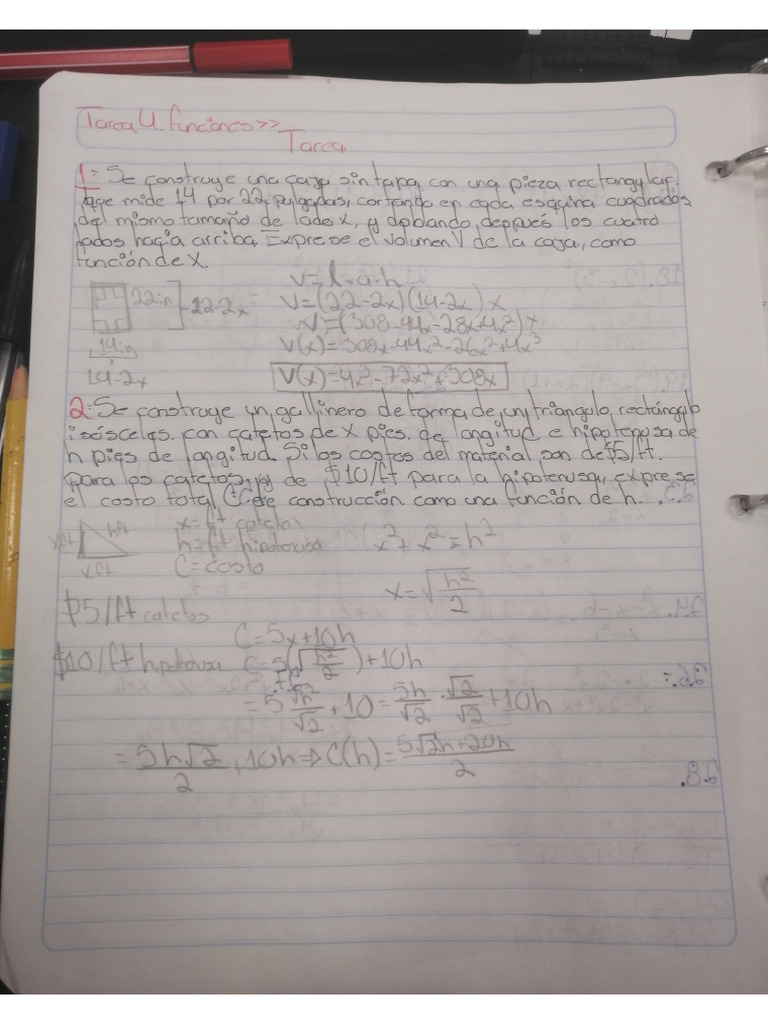 Tarea 4. funciones >>
Tarea
1: Se construye una caja sin tapa con una pieza rectangular
que mide 14 por 22 pulgadas, cortando en cada esquina cuadrados
del mismo tamaño de lado x, y doblando, después los cuatro
lados hacia arriba. Exprese el volumen V de la caja, como
función de x.
V=l·a·h
22in 22-2x V=(22-2x)(14-2x)x
V=(308-44x-28x+4x²)x
14in V(x)=308x-44x²-26x²+4x³
14-2x V(x)=4x³-72x²+308x
2: Se construye un gallinero de forma de un triángulo rectángulo
isósceles. con catetos de x pies. de longitud e hipotenusa de
h pies de longitud. Si los costos del material son de $5/ft.
para los catetos, y de $10/ft para la hipotenusa, exprese
el costo total, C de construcción como una función de h.
xft hft x=ft cateto
h=ft hipotenusa x²+x²=h²
xft C=costo
x=√h²/2
$5/ft catetos
C=5x+10h
$10/ft hipotenusa C=5(√h²/2)+10h
=5 √h²/√2 +10 = 5h/√2 · √2/√2 +10h
= 5h√2/2 + 10h ⇒ C(h)= 5√2h+20h/2